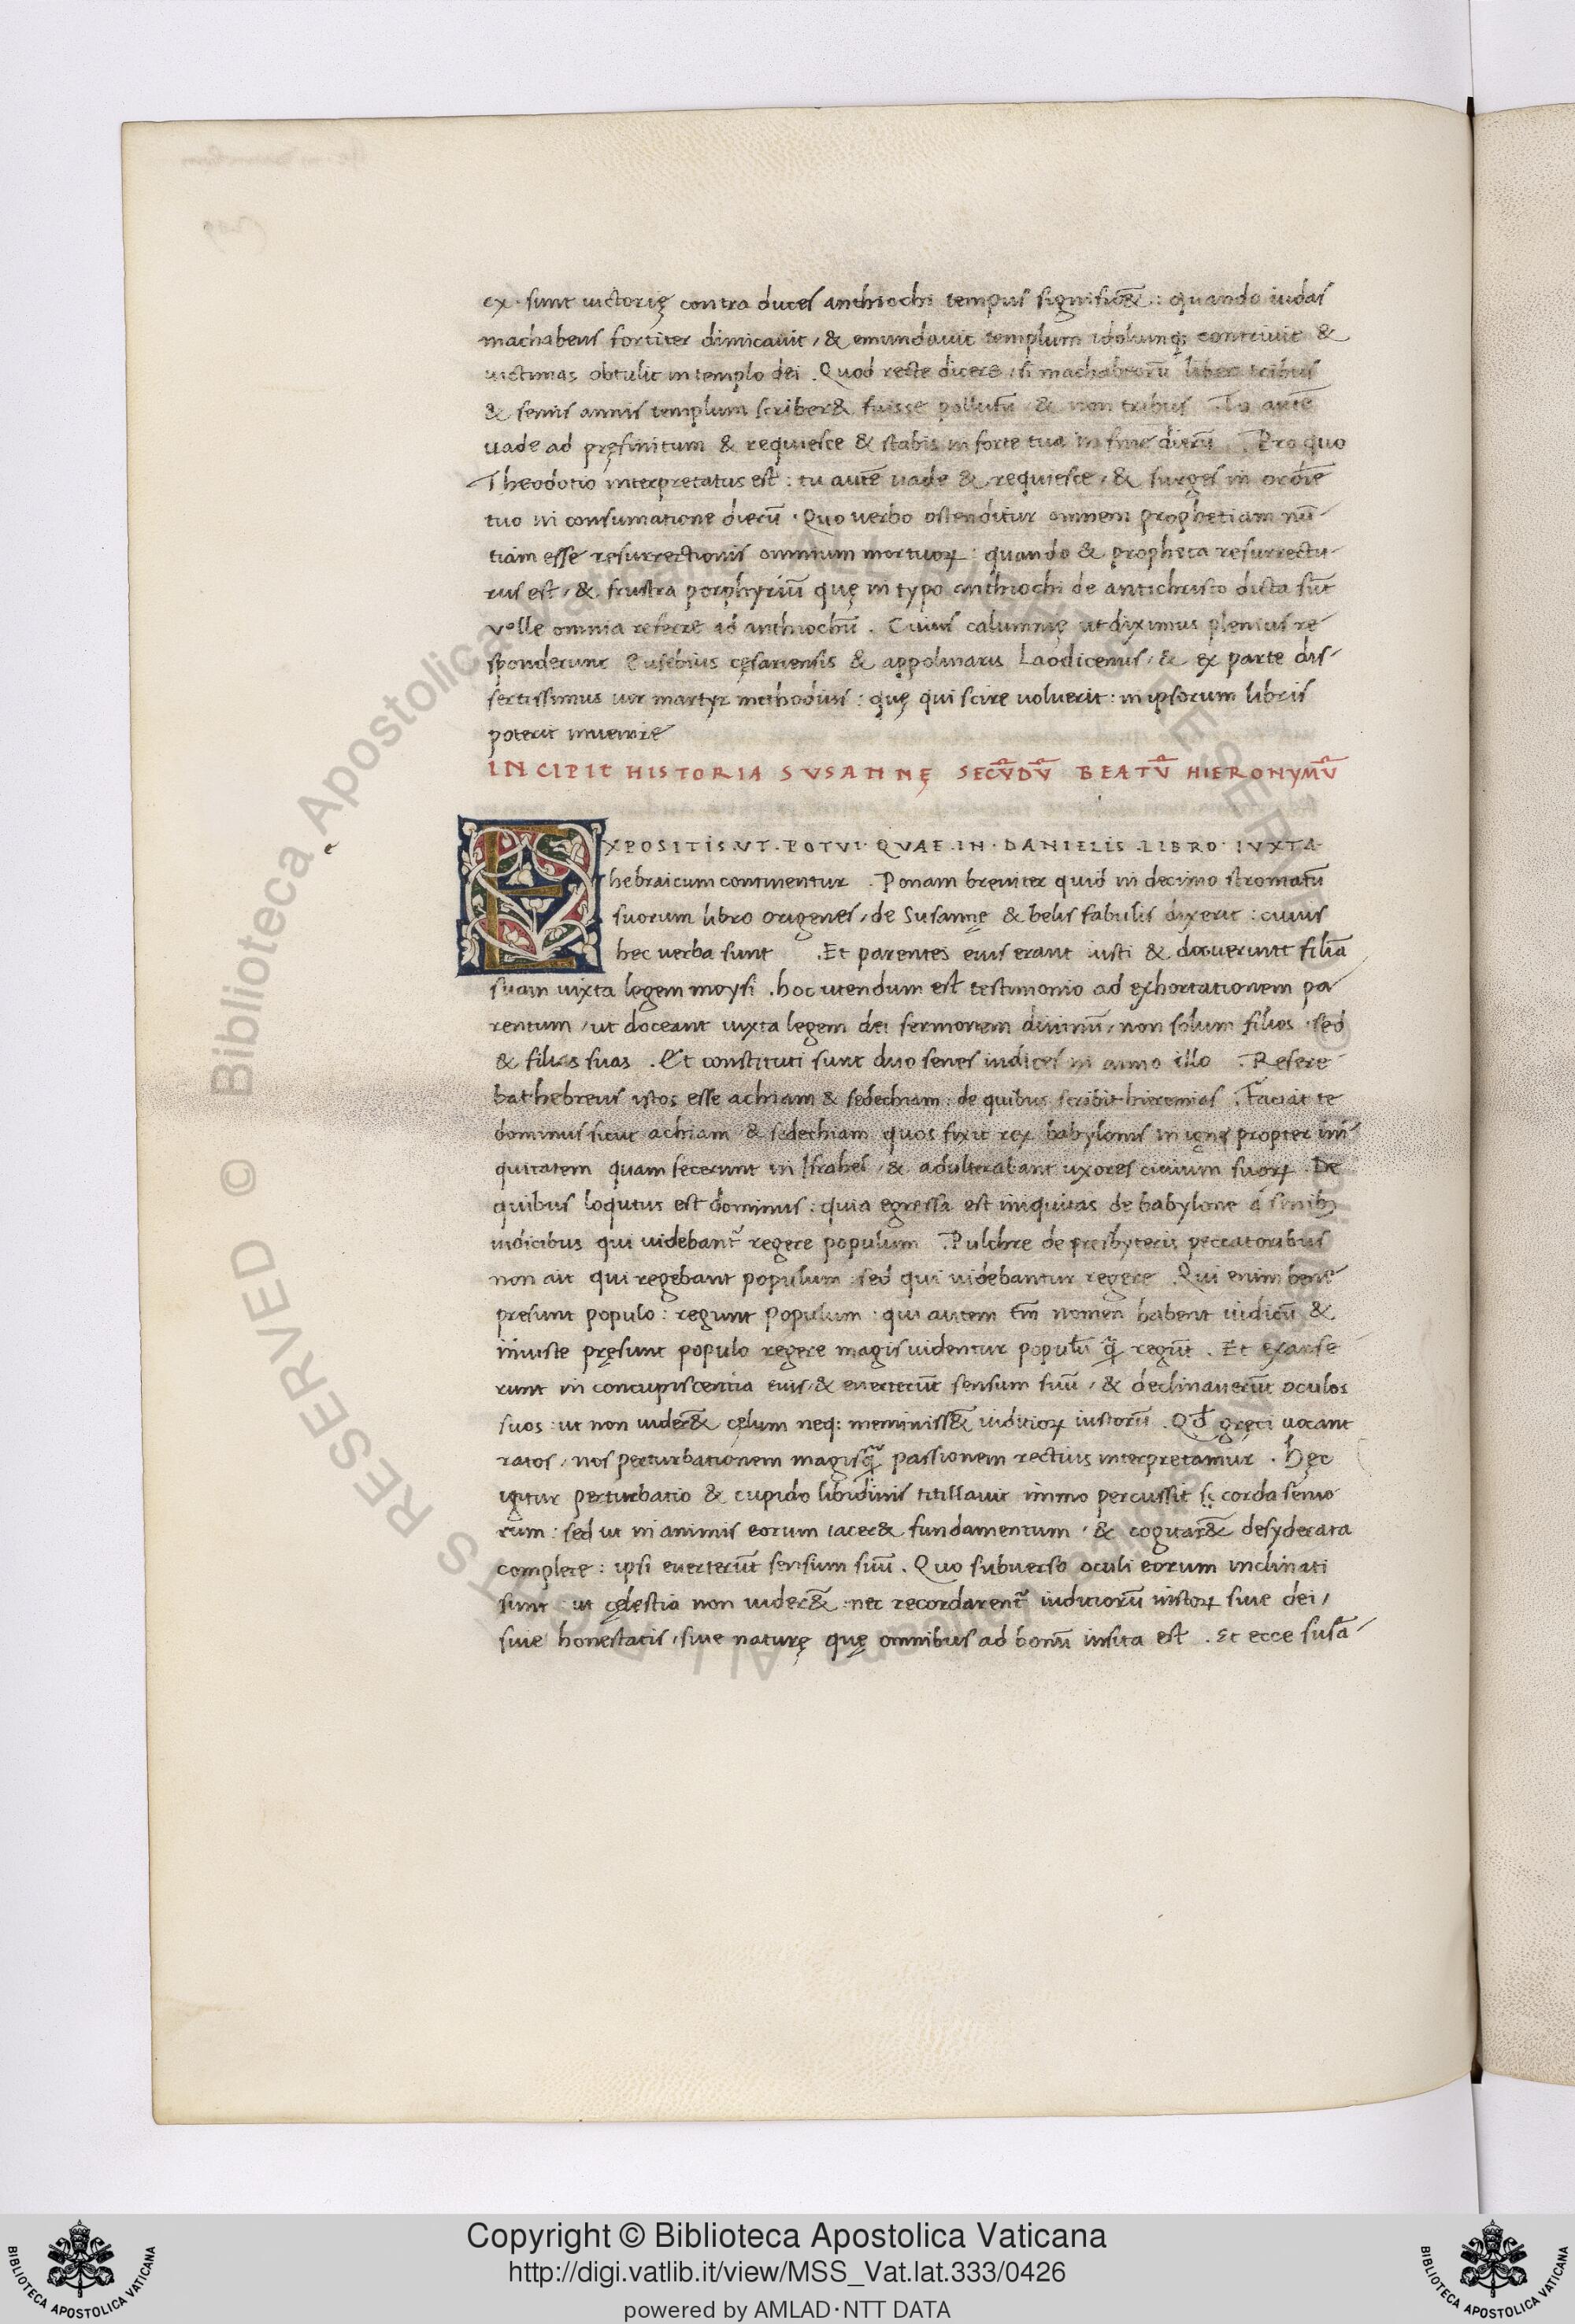 ex. sunt uictorię contra duces anthiochi tempus signific&̄: quando iudas
machabeus fortiter dimicauit, & emundauit templum idolumq; contriuit &
uictimas obtulit in templo dei. Quod recte diceret, si machabeorū liber tribus
& semis annis templum scriber& fuisse pollutū & non tribus. Tu autē
uade ad pręfinitum & requiesce & stabis in sorte tua in fine dierū. Pro quo
Theodotio interpretatus est: tu autē uade & requiesce, & surges in ordīe
tuo in consumatione dierū. Quo uerbo ostenditur omnem prophetiam nū-
tiam esse resurrectionis omnium mortuoꝝ: quando & propheta resurrectu-
rus est, & frustra porphyriū quę in typo anthiochi de antichristo dicta sūt
uelle omnia referre ad anthiochū. Cuius calumnię ut diximus plenius re
sponderunt Eusebius cęsariensis & appolinaris Laodicenus, & ex parte dis-
sertissimus uir martyr methodius: quę qui scire uoluerit: in ipsorum libris
poterit inuenire
INCIPIT HISTORIA SVSANNĘ SECV̄DV̄ BEATV̄ HIERONYMV̄
EXPOSITIS.VT.POTVI.QVAE.IN.DANIELIS.LIBRO.IVXTA.
hebraicum continentur. Ponam breuiter quid in decimo stromatū
suorum libro origenes, de Susannę & belis fabulis dixerit: cuius
hec uerba sunt. Et parentes eius erant iusti & docuerunt filiā
suam iuxta legem moysi. hoc utendum est testimonio ad exhortationem pa
rentum, ut doceant iuxta legem dei sermonem diuinū, non solum filios sed
& filias suas. Et constituti sunt duo senes iudices in anno illo. Refere
bat hebreus istos esse achiam & sedechiam: de quibus scribit hieremias. Faciat te
dominus sicut achiam & sedechiam quos fixit rex babylonis in igne propter ini-
quitatem quam fecerunt in Israhel, & adulterabant uxores ciuium suoꝝ. De
quibus loqutus est dominus: quia egressa est iniquitas de babylone a senibꝫ
iudicibus qui uidebant᷑ regere populum. Pulchre de presbyteris peccatoribus
non ait qui regebant populum: sed qui uidebantur regere. Qui enim bene
presunt populo: regunt populum: qui autem tm̄ nomen habent iudicū &
iniuste pręsunt populo regere magis uidentur populū q̄ regūt. Et exarse
runt in concupiscentia eius, & euerterūt sensum suū, & declinauerūt oculos
suos: ut non uider&̄ cęlum neq: meminiss&̄ iuditioꝝ iustorū. Qd̄ gręci uocant
ratos, nos perturbationem magisq̄ passionem rectius interpretamur. Hęc
igitur perturbatio & cupido libidinis titillauit immo percussit sc corda senio
rum: sed ut in animis eorum iacer& fundamentum, & cogitar&̄ desyderata
complere: ipsi euerterūt sensum suū. Quo subuerso oculi eorum inclinati
sunt: ut cęlestia non uider&̄ nec recordarent᷑ iuditiorū iustoꝝ siue dei,
siue honestatis, siue naturę quę omnibus ad bonū insita est. Et ecce susā-
Copyright © Biblioteca Apostolica Vaticana
http://digi.vatlib.it/view/MSS_Vat.lat.333/0426
powered by AMLAD·NTT DATA